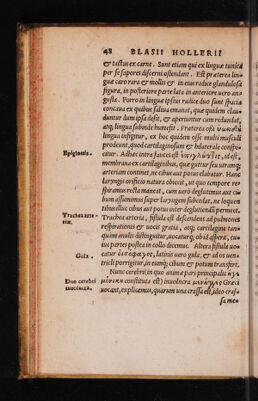 48 BLASII HOLLERII
& tactus ex carne. Sunt etiam qui ex linguæ tunica
per se sapores discerni ostendant. Est præterea lin
guæ caro rara & mollis & in eius radice glandulosa
figura, in posteriore parte lata in anteriore vero an
gusta. Porro in linguæ ipsius radice duo sunt spacia
concaua ex quibus saliua emanat, quæ quidem clau
duntur dum ipsa desit, & aperiuntur cum redundat,
atq; lingua subinde humescit. Præterea osse
lingua infigitur, ex hoc quidem osse multi musculi
prodeunt, quod cartilaginosum & bilaterale consti-
Epiglottis. citur. Adhæc inter fauces est ἐπιγλωττὶς, id est,
membrana ex cartilaginibus, quæ guttur seu uiuam
arteriam continet, ne cibus aut potus elabatur. Hanc
laryngis orificio natura obiecit, ut quo tempore re
spiramus recta maneat, cum uero deglutimus aut ci
bum assumimus super laryngem subsidat, ne loquen
tibus illuc cibus aut potus inter deglutiendum permeet.
Trachea arte- Trachea arteria, fistula est descendens ad pulmones
ria. respirationis & uocis gratia, atq; ex cartilagine tan
quam anulis distinguitur, uocaturq; ob id aspera, cu
ius partes postea in collo decimus. Altera fistula uo
Gula. catur οἰσοφάγος, latinis uero gula, & ad os uen-
triculi porrigitur, in eamq; cibum & potum transfert.
Nunc cerebri in quo animæ pars principalis
Duo cerebri constituta est) inuolucra Græci
inuolucra. uocant, explicemus, quarum una crassa est, ideo crassa